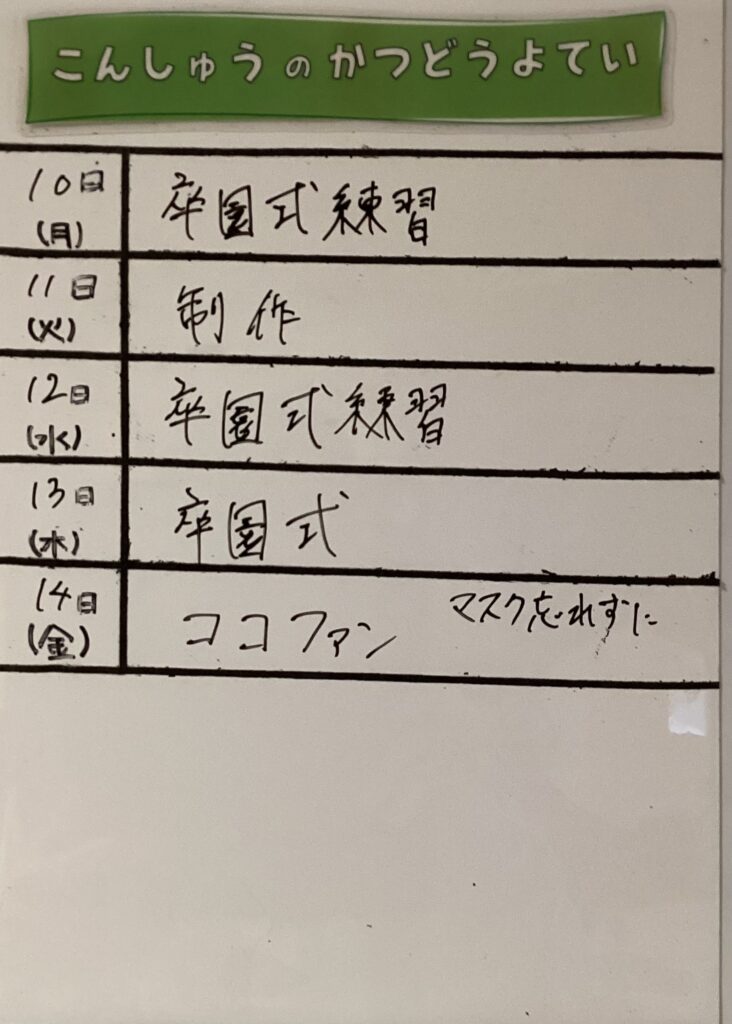 こんしゅうのかつどうよてい
10日(月) 卒園式練習
11日(火) 制作
12日(水) 卒園式練習
13日(木) 卒園式
14日(金) ココファン マスク忘れずに